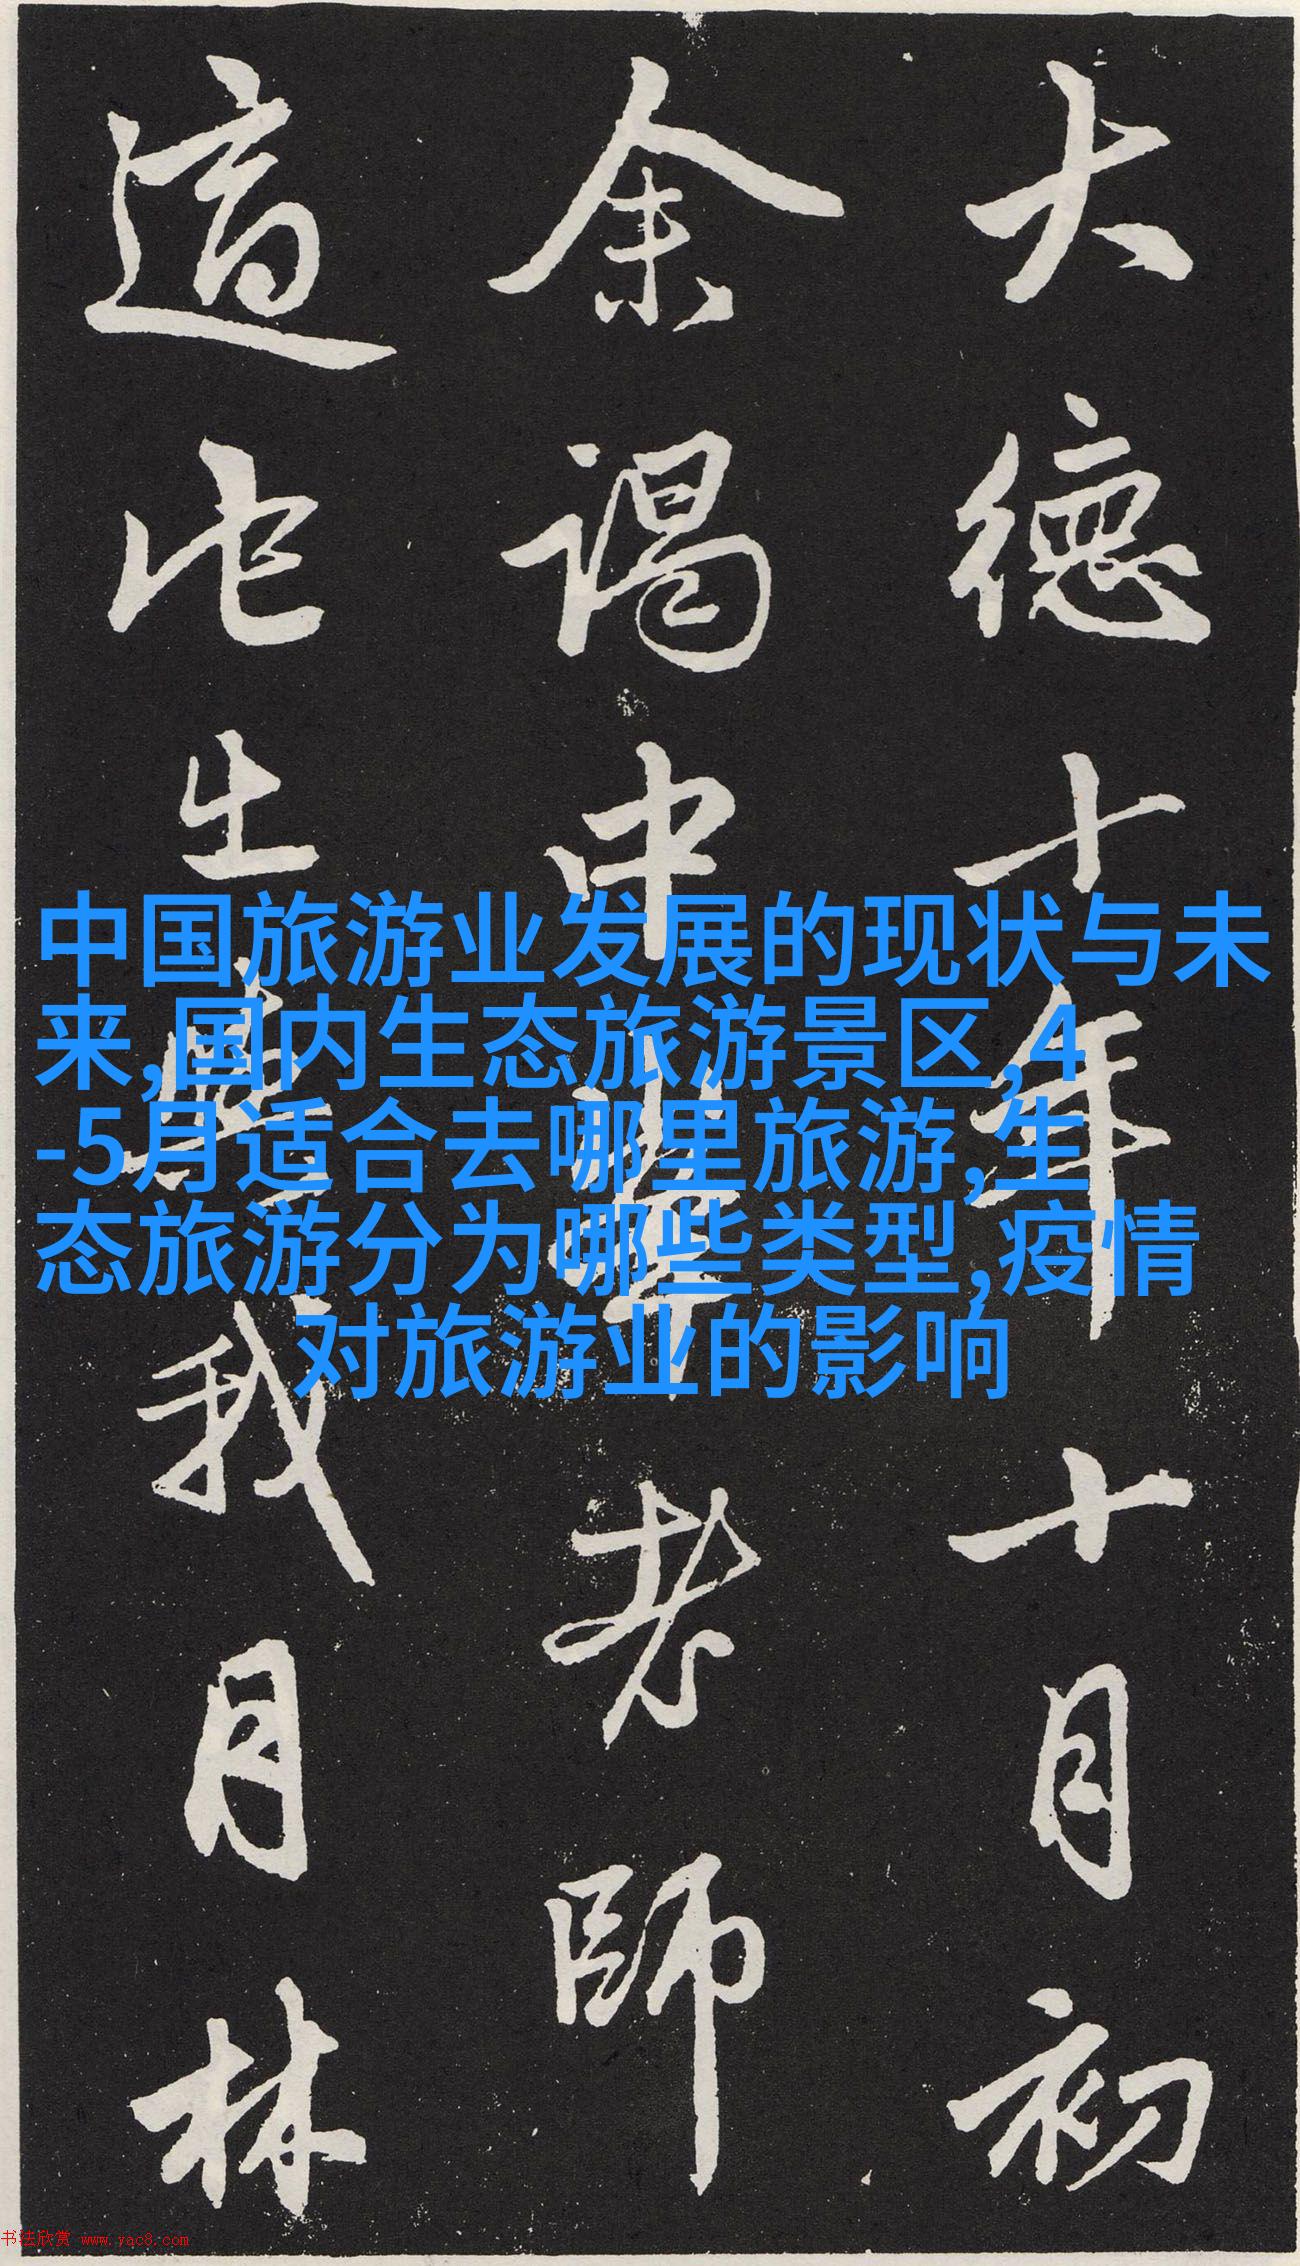 大德十年十月初
余謁中峯老師
適此生與我月林
中国旅游业发展的现状与未
来,国内生态旅游景区,4
-5月适合去哪里旅游,生
态旅游分为哪些类型,疫情
对旅游业的影响
书法欣赏 www.yac8.com